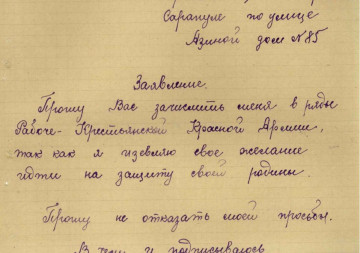 Сарапуле по улице
Азиной дом №85
Заявление.
Прошу Вас зачислить меня в ряды
Рабоче-Крестьянской Красной Армии,
так как я изъевляю свое желание
идти на защиту своей родины.
Прошу не отказать моей просьбы.
В чем и подписываюсь